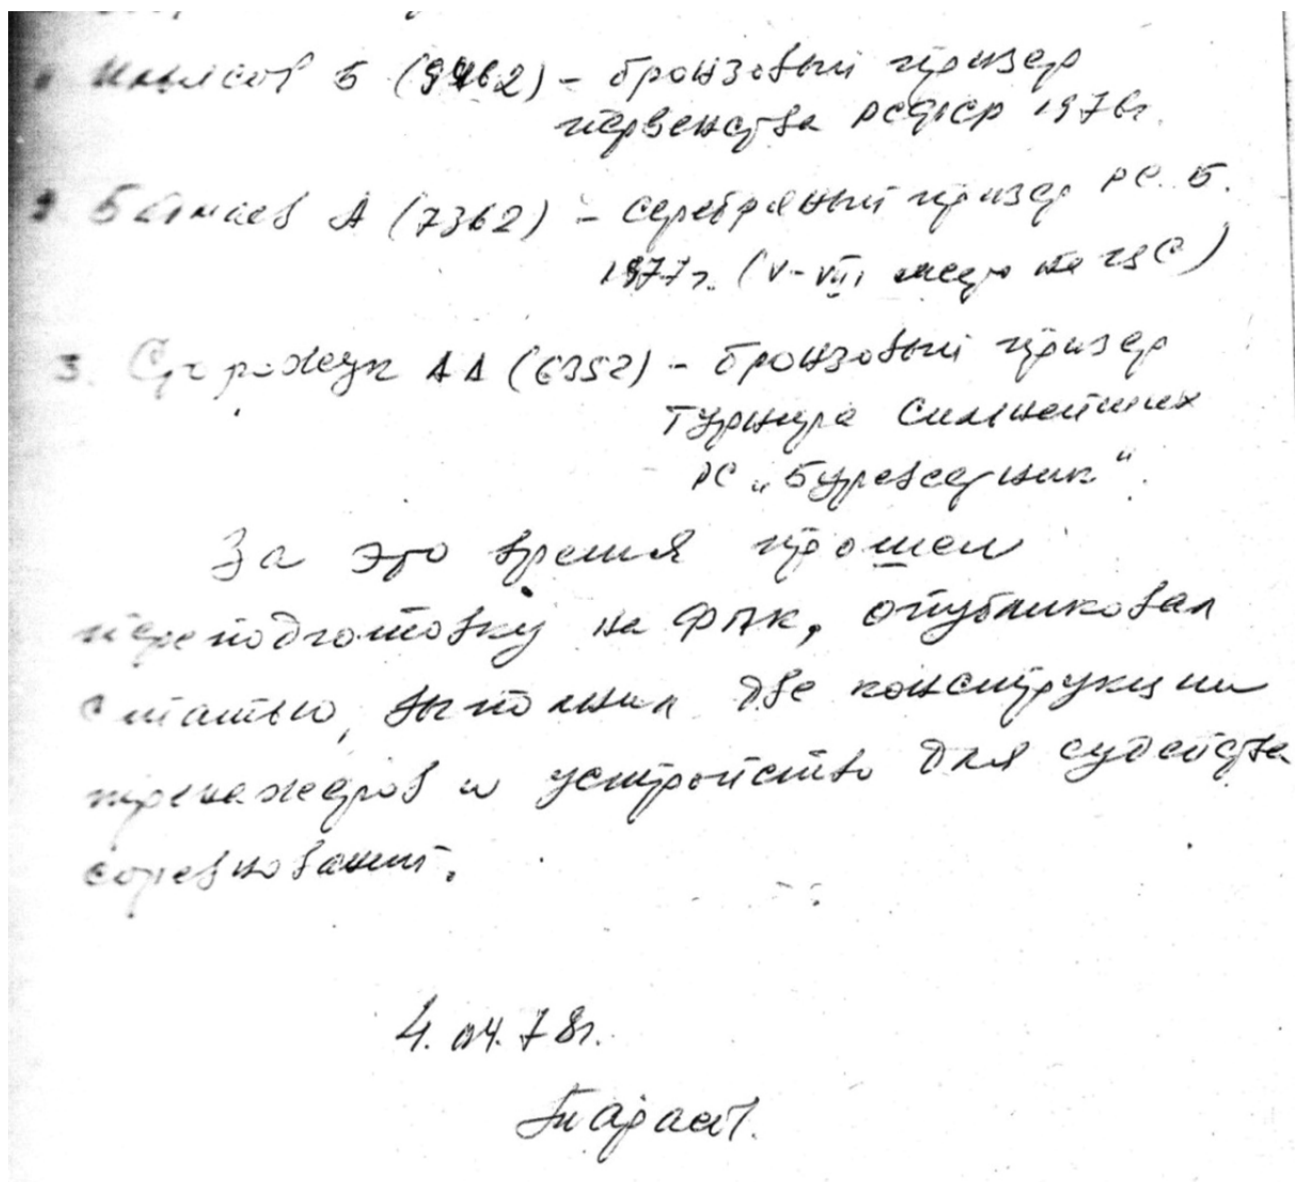 Б (9462) – бронзовый призер
первенства РСФСР 1976г.
2. А (7362) – серебряный призер РС. Б.
1977г. (V-VII место на ЦС)
3. АА (6352) – бронзовый призер
турнира сильнейших
РС „Буревестник“.
За это время прошел
переподготовку на ФПК, опубликовал
статью, выполнил две конструкции
тренажеров и устройство для судейства
соревнований.
4.04.78г.